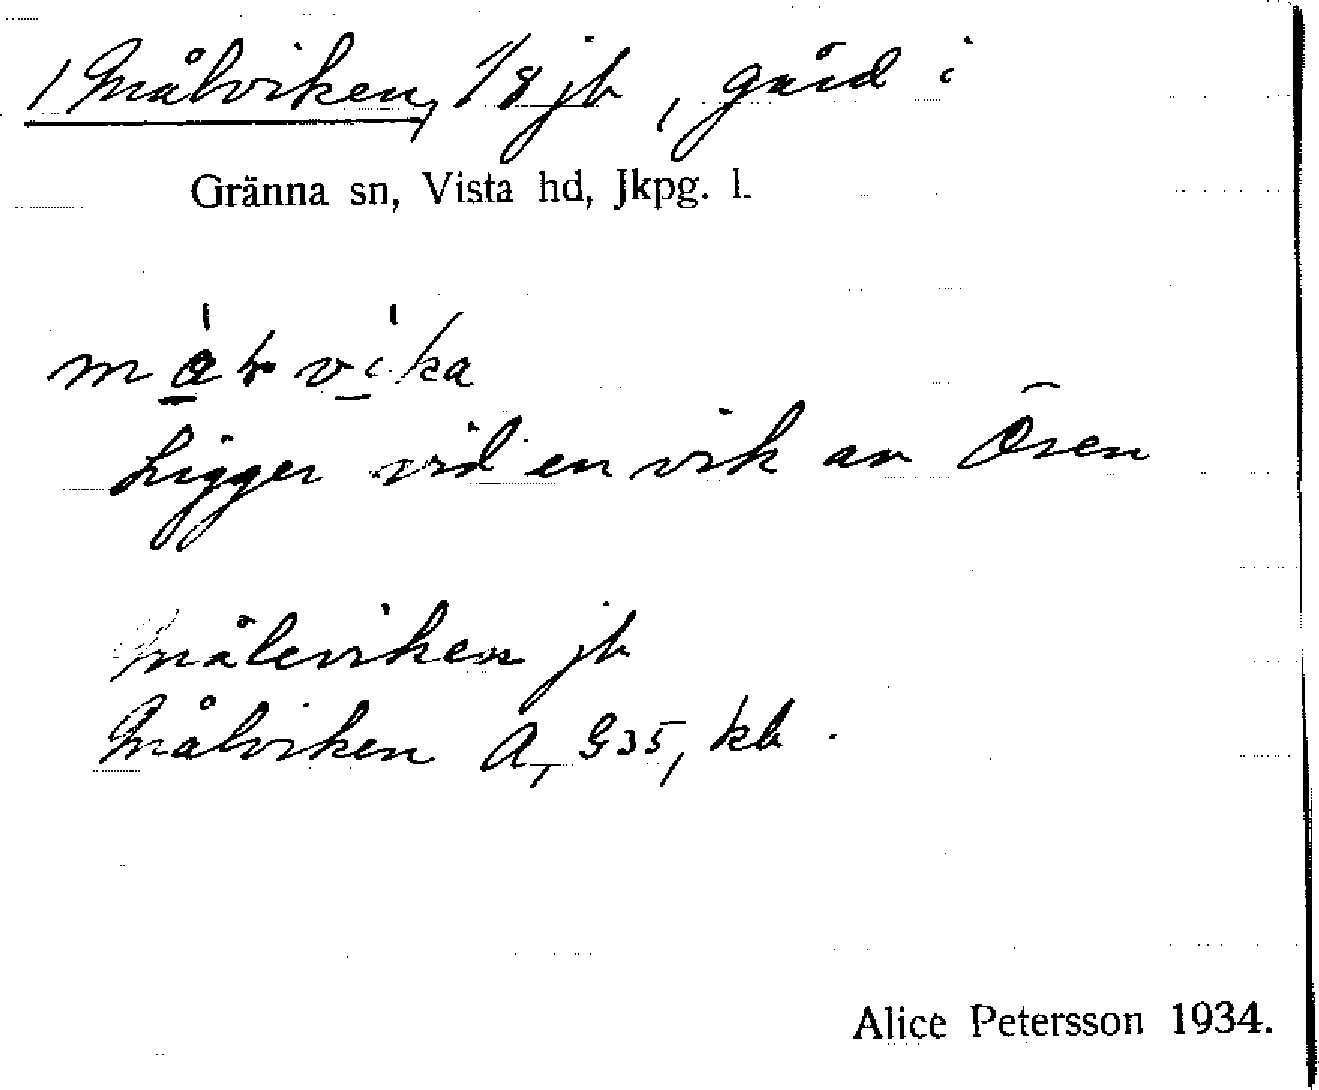 1 Målviken, 1/8 jb, gård i
Gränna sn, Vista hd, Jkpg. l.
Ligger vid en vik av Ören
Måleviken jb
Målviken A, G35, kb.
Alice Petersson 1934.